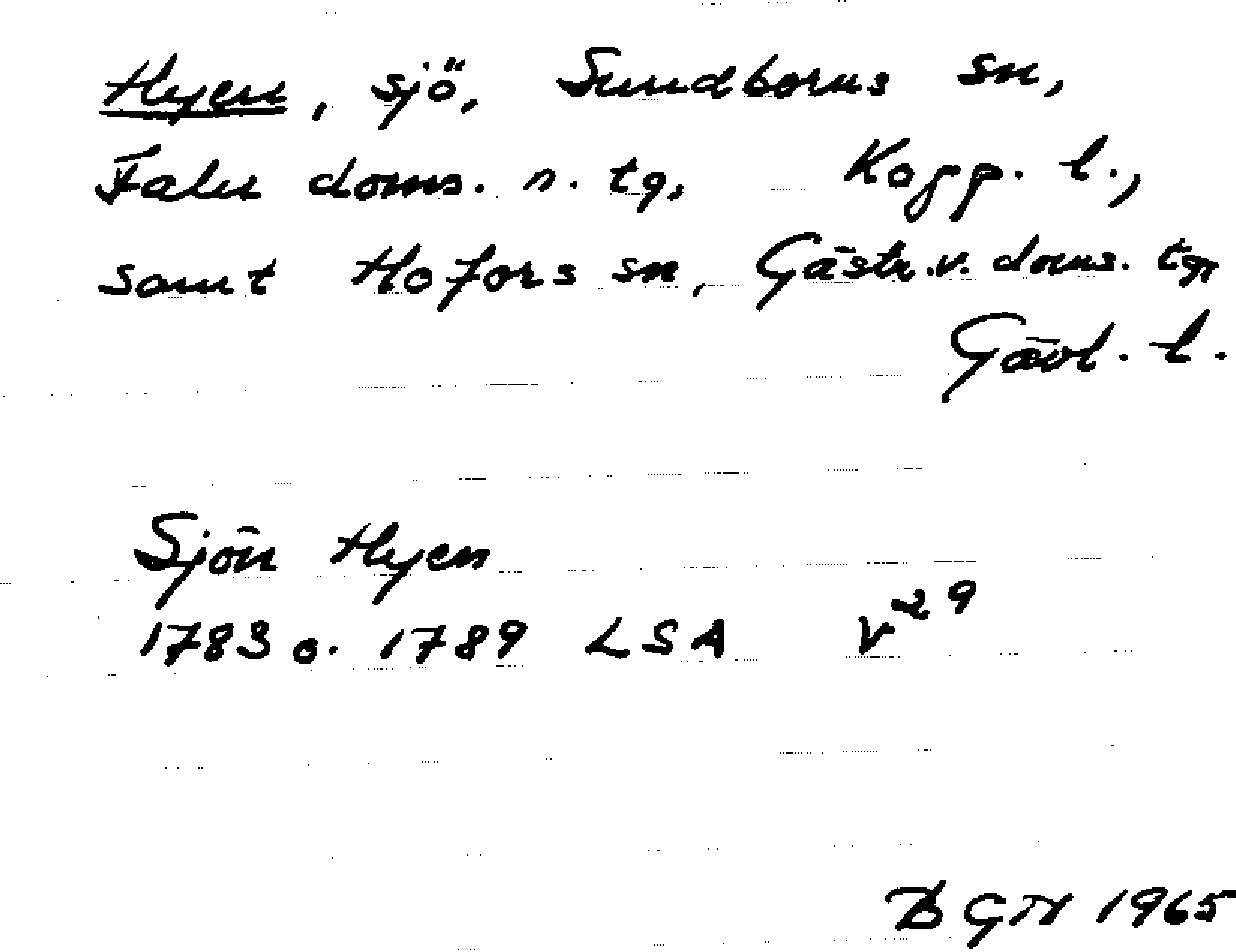 Hyen, sjö, Sundborns sn,
Falu doms. n. tg, Kopp. l.,
samt Hofors sn, Gästr. v. doms. tg,
Gävl. l.
Sjön Hyen
1783 o. 1789 LSA V29
GN 1965